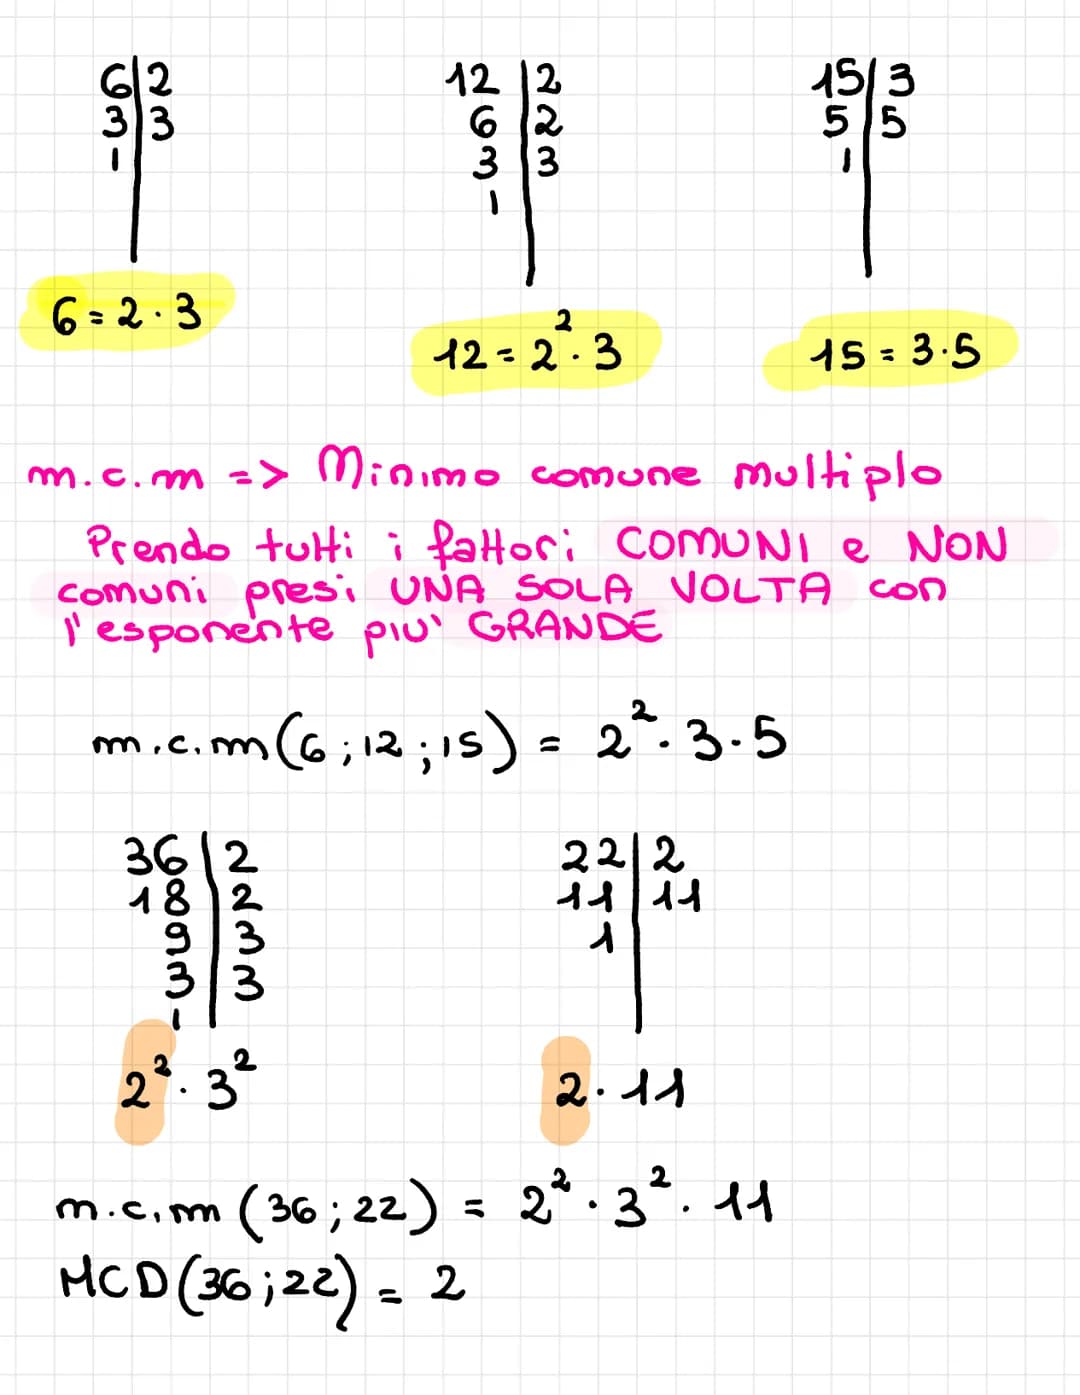 6|2 12|2 15|3
3|3 6|2 5|5
1 3|3 1
1
6 = 2 · 3
12 = 2² · 3 15 = 3·5
m.c.m => Minimo comune multiplo
Prendo tutti i fattori COMUNI e NON
comuni presi UNA SOLA VOLTA con
l'esponente piu' GRANDE
m.c.m (6 ; 12 ; 15) = 2² · 3 · 5
36|2 22|2
18|2 11|11
9|3 1
3|3
1
2² · 3² 2 · 11
m.c.m (36 ; 22) = 2² · 3² · 11
MCD (36 ; 22) = 2